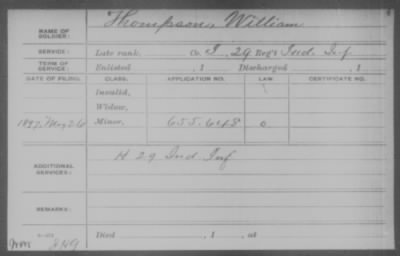 Thompson, William
NAME OF SOLDIER:
SERVICE: Late rank, Co. I, 29 Reg't Ind. Inf
TERM OF SERVICE: Enlisted , 1 Discharged , 1
DATE OF FILING. CLASS. APPLICATION NO. LAW. CERTIFICATE NO.
Invalid,
Widow,
1897, May 26 Minor, 655.648
ADDITIONAL SERVICES: H 29 Ind Inf
REMARKS:
Died , 1 , at